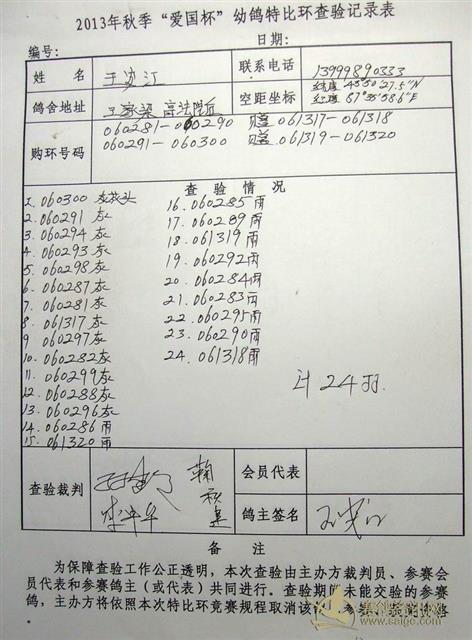 2013年秋季“爱国杯”幼鸽特比环查验记录表
编号: 日期:
姓名 王 江 联系电话 13999890333
鸽舍地址 王家梁 高法院后 空距坐标 43°50′27.5″N
87°35′58.6″E
购环号码 060281-060290 赠 061317-061318
060291-060300 赠 061319-061320
查验情况
1. 060300 灰花头
2. 060291 灰
3. 060294 灰
4. 060293 灰
5. 060298 灰
6. 060287 灰
7. 060281 灰
8. 061317 灰
9. 060297 灰
10. 060282 灰
11. 060299 灰
12. 060288 灰
13. 060296 灰
14. 060286 雨
15. 061320 雨
16. 060285 雨
17. 060289 雨
18. 061319 雨
19. 060292 雨
20. 060284 雨
21. 060283 雨
22. 060295 雨
23. 060290 雨
24. 061318 雨
计 24 羽
查验裁判 会员代表
鸽主签名
备注
为保障查验工作公正透明，本次查验由主办方裁判员、参赛会
员代表和参赛鸽主（或代表）共同进行。查验期间未能交验的参赛
鸽，主办方将依照本次特比环竞赛规程取消该
www.saige.com